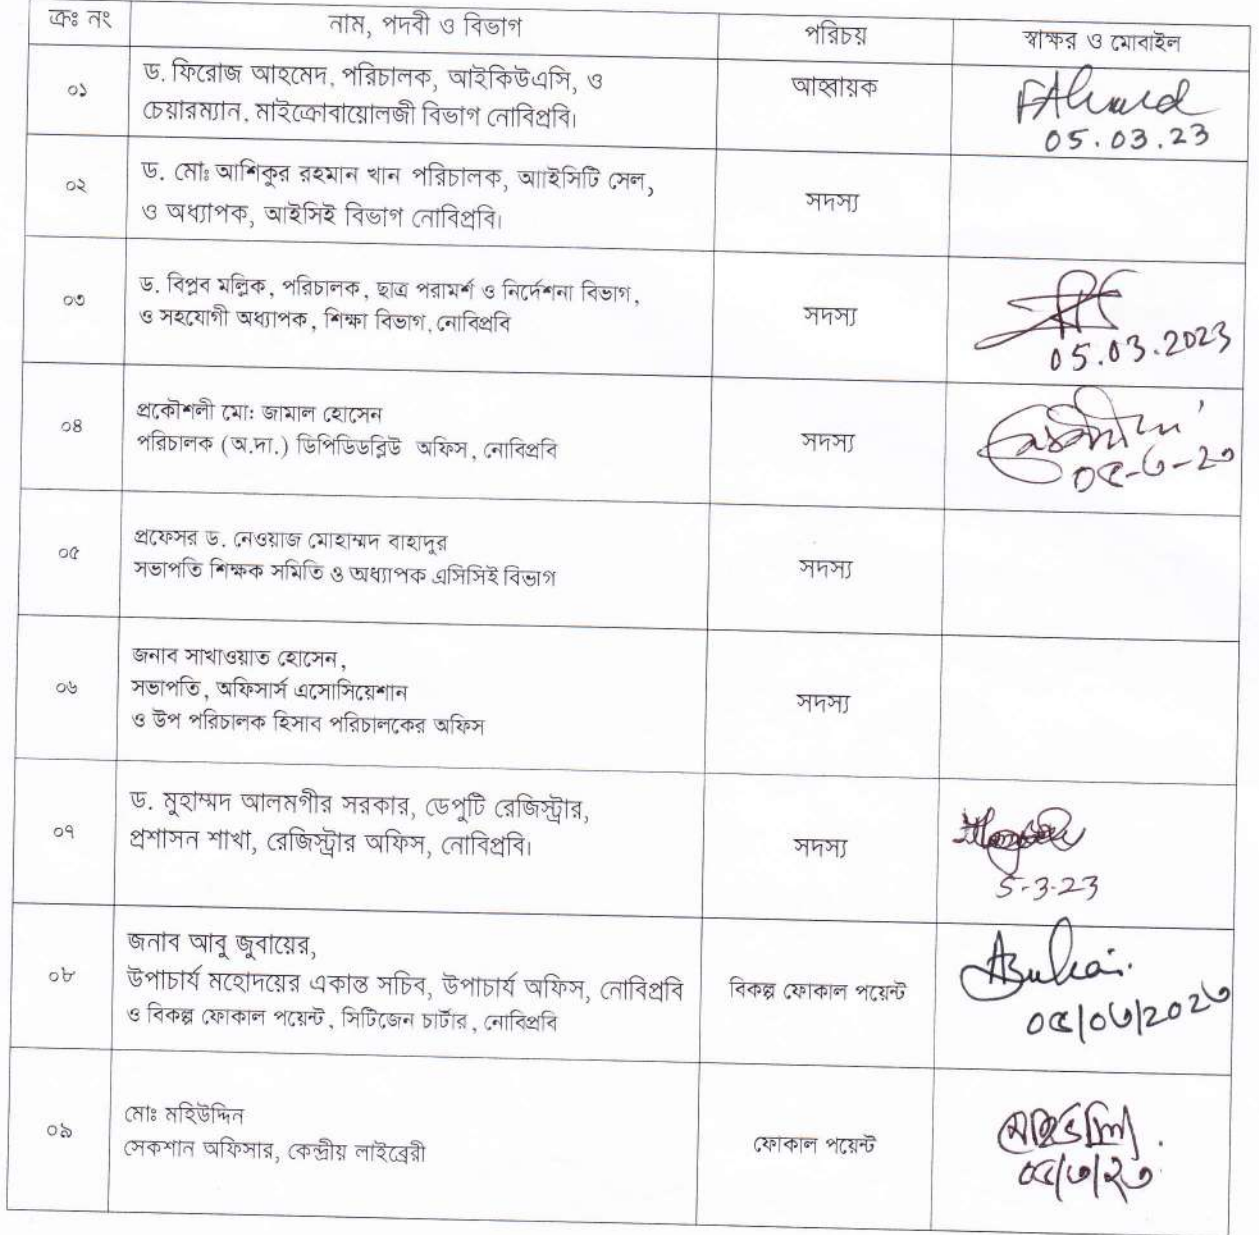 ক্রঃ নং নাম, পদবী ও বিভাগ পরিচয় স্বাক্ষর ও মোবাইল
০১ ড. ফিরোজ আহমেদ, পরিচালক, আইকিউএসি, ও
চেয়ারম্যান, মাইক্রোবায়োলজী বিভাগ নোবিপ্রবি। আহ্বায়ক FAhmed
05.03.23
০২ ড. মোঃ আশিকুর রহমান খান পরিচালক, আাইসিটি সেল,
ও অধ্যাপক, আইসিই বিভাগ নোবিপ্রবি। সদস্য
০৩ ড. বিপ্লব মল্লিক, পরিচালক, ছাত্র পরামর্শ ও নির্দেশনা বিভাগ,
ও সহযোগী অধ্যাপক, শিক্ষা বিভাগ, নোবিপ্রবি সদস্য
05.03.2023
০৪ প্রকৌশলী মো: জামাল হোসেন
পরিচালক (অ.দা.) ডিপিডিডব্লিউ অফিস, নোবিপ্রবি সদস্য
০৫-৩-২৩
০৫ প্রফেসর ড. নেওয়াজ মোহাম্মদ বাহাদুর
সভাপতি শিক্ষক সমিতি ও অধ্যাপক এসিসিই বিভাগ সদস্য
০৬ জনাব সাখাওয়াত হোসেন,
সভাপতি, অফিসার্স এসোসিয়েশান
ও উপ পরিচালক হিসাব পরিচালকের অফিস সদস্য
০৭ ড. মুহাম্মদ আলমগীর সরকার, ডেপুটি রেজিস্ট্রার,
প্রশাসন শাখা, রেজিস্ট্রার অফিস, নোবিপ্রবি। সদস্য
5-3-23
০৮ জনাব আবু জুবায়ের,
উপাচার্য মহোদয়ের একান্ত সচিব, উপাচার্য অফিস, নোবিপ্রবি
ও বিকল্প ফোকাল পয়েন্ট, সিটিজেন চার্টার, নোবিপ্রবি বিকল্প ফোকাল পয়েন্ট
০৫/০৩/২০২৩
০৯ মোঃ মহিউদ্দিন
সেকশান অফিসার, কেন্দ্রীয় লাইব্রেরী ফোকাল পয়েন্ট
০৫/৩/২৩